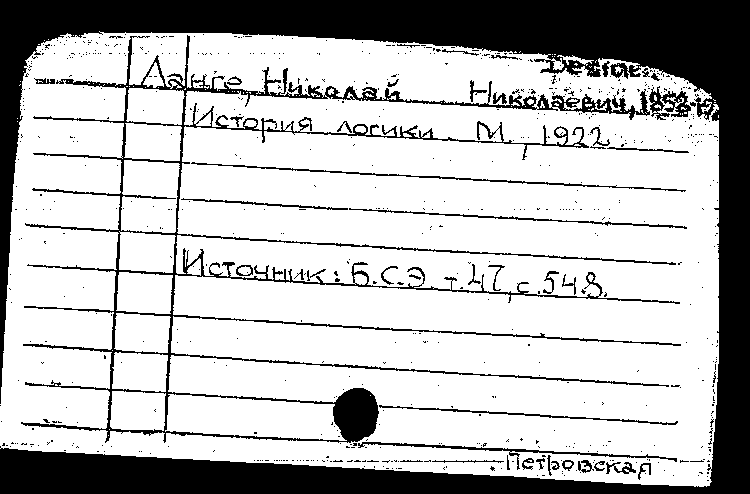 Ланге, Николай Николаевич, 1858-19
История логики. М., 1922.
Источник: Б.С.Э. т.47, с.548.
Петровская